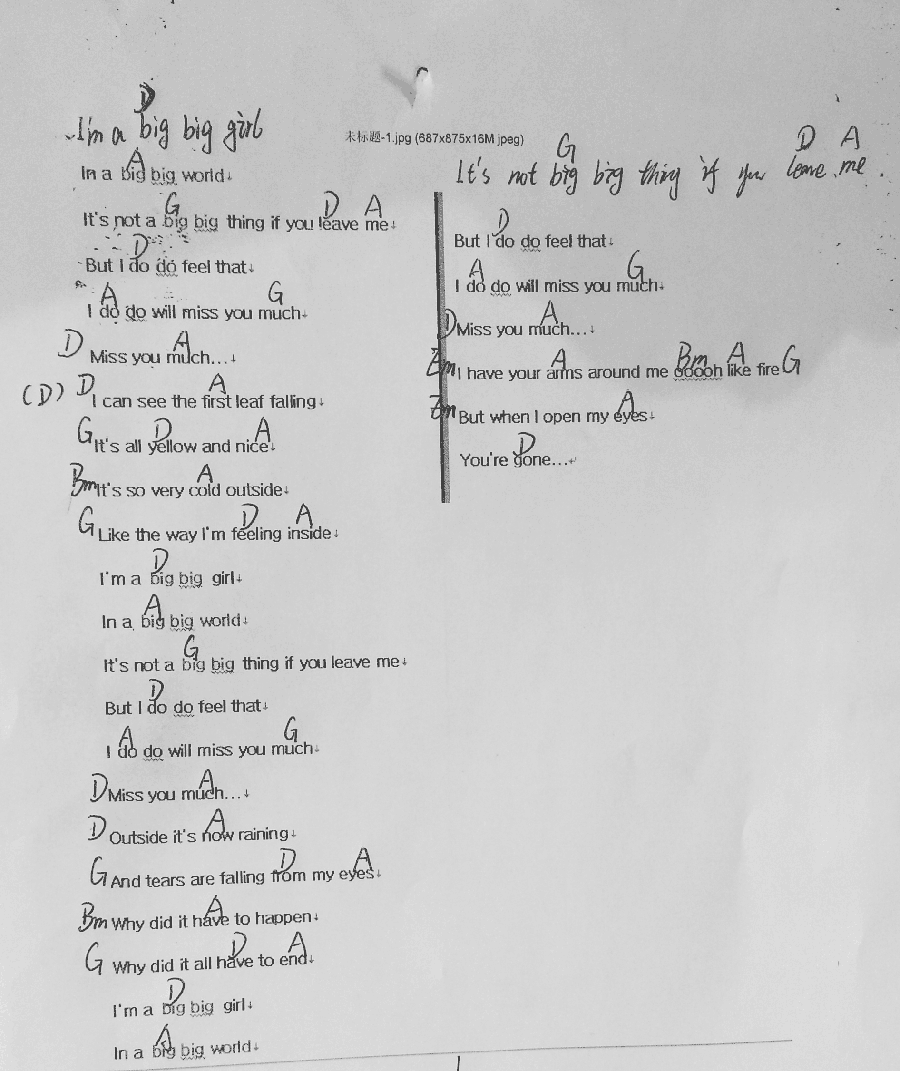 D
I'm a big big girl
A
In a big big world
G D A
It's not a big big thing if you leave me
D
But I do do feel that
A G
I do do will miss you much
D A
Miss you much...
(D) D A
I can see the first leaf falling
G D A
It's all yellow and nice
Bm A
It's so very cold outside
G D A
Like the way I'm feeling inside
D
I'm a big big girl
A
In a big big world
G
It's not a big big thing if you leave me
D
But I do do feel that
A G
I do do will miss you much
D A
Miss you much...
D A
Outside it's now raining
G D A
And tears are falling from my eyes
Bm A
Why did it have to happen
G D A
Why did it all have to end
D
I'm a big big girl
A
In a big big world
未标题-1.jpg (687x875x16M jpeg)
G D A
It's not big big thing if you leave me.
D
But I do do feel that
A G
I do do will miss you much
D A
Miss you much...
Em A Bm A G
I have your arms around me ooooh like fire
Em A
But when I open my eyes
D
You're gone...